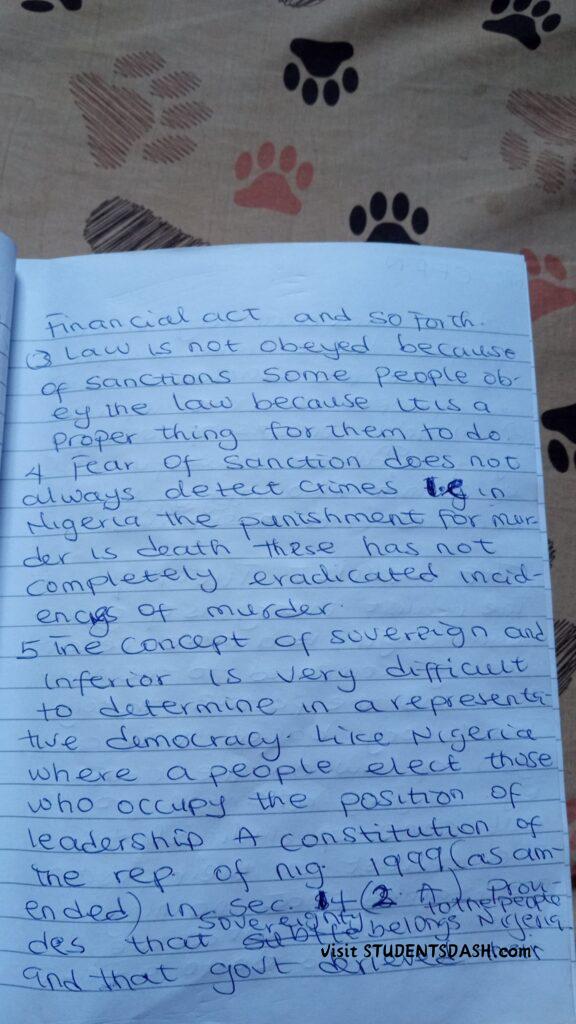 Financial act and so forth.
(3 Law is not obeyed because
of sanctions some people ob-
ey the law because it is a
proper thing for them to do
4 Fear of sanction does not
always detect crimes i.e in
Nigeria the punishment for mur-
der is death these has not
completely eradicated incid-
ences of murder.
5 The concept of sovereign and
inferior is very difficult
to determine in a representa-
tive democracy. Like Nigeria
where a people elect those
who occupy the position of
leadership A constitution of
the rep. of nig 1999 (as am-
ended) in sec. 14 (2 A) provi-
des that sovereignty belongs to the people Nigeria
and that govt
visit STUDENTSDASH.com